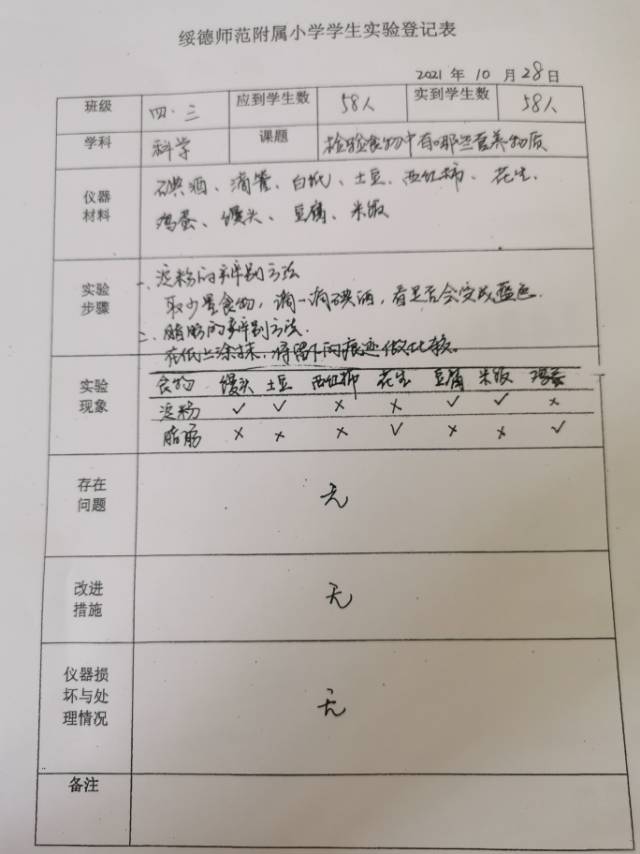 绥德师范附属小学学生实验登记表
2021 年 10 月 28 日
班级 四·三 应到学生数 58人 实到学生数 58人
学科 科学 课题 检验食物中有哪些营养物质
仪器材料
碘酒、滴管、白纸、土豆、西红柿、花生、
鸡蛋、馒头、豆腐、米饭
实验步骤
一、淀粉的辨别方法
取少量食物,滴一滴碘酒,看是否会变成蓝色.
二、脂肪的辨别方法.
在纸上涂抹,将留下的痕迹做比较。
实验现象
食物 馒头 土豆 西红柿 花生 豆腐 米饭 鸡蛋
淀粉 ✓ ✓ × × ✓ ✓ ×
脂肪 × × × ✓ × × ✓
存在问题 无
改进措施 无
仪器损坏与处理情况 无
备注